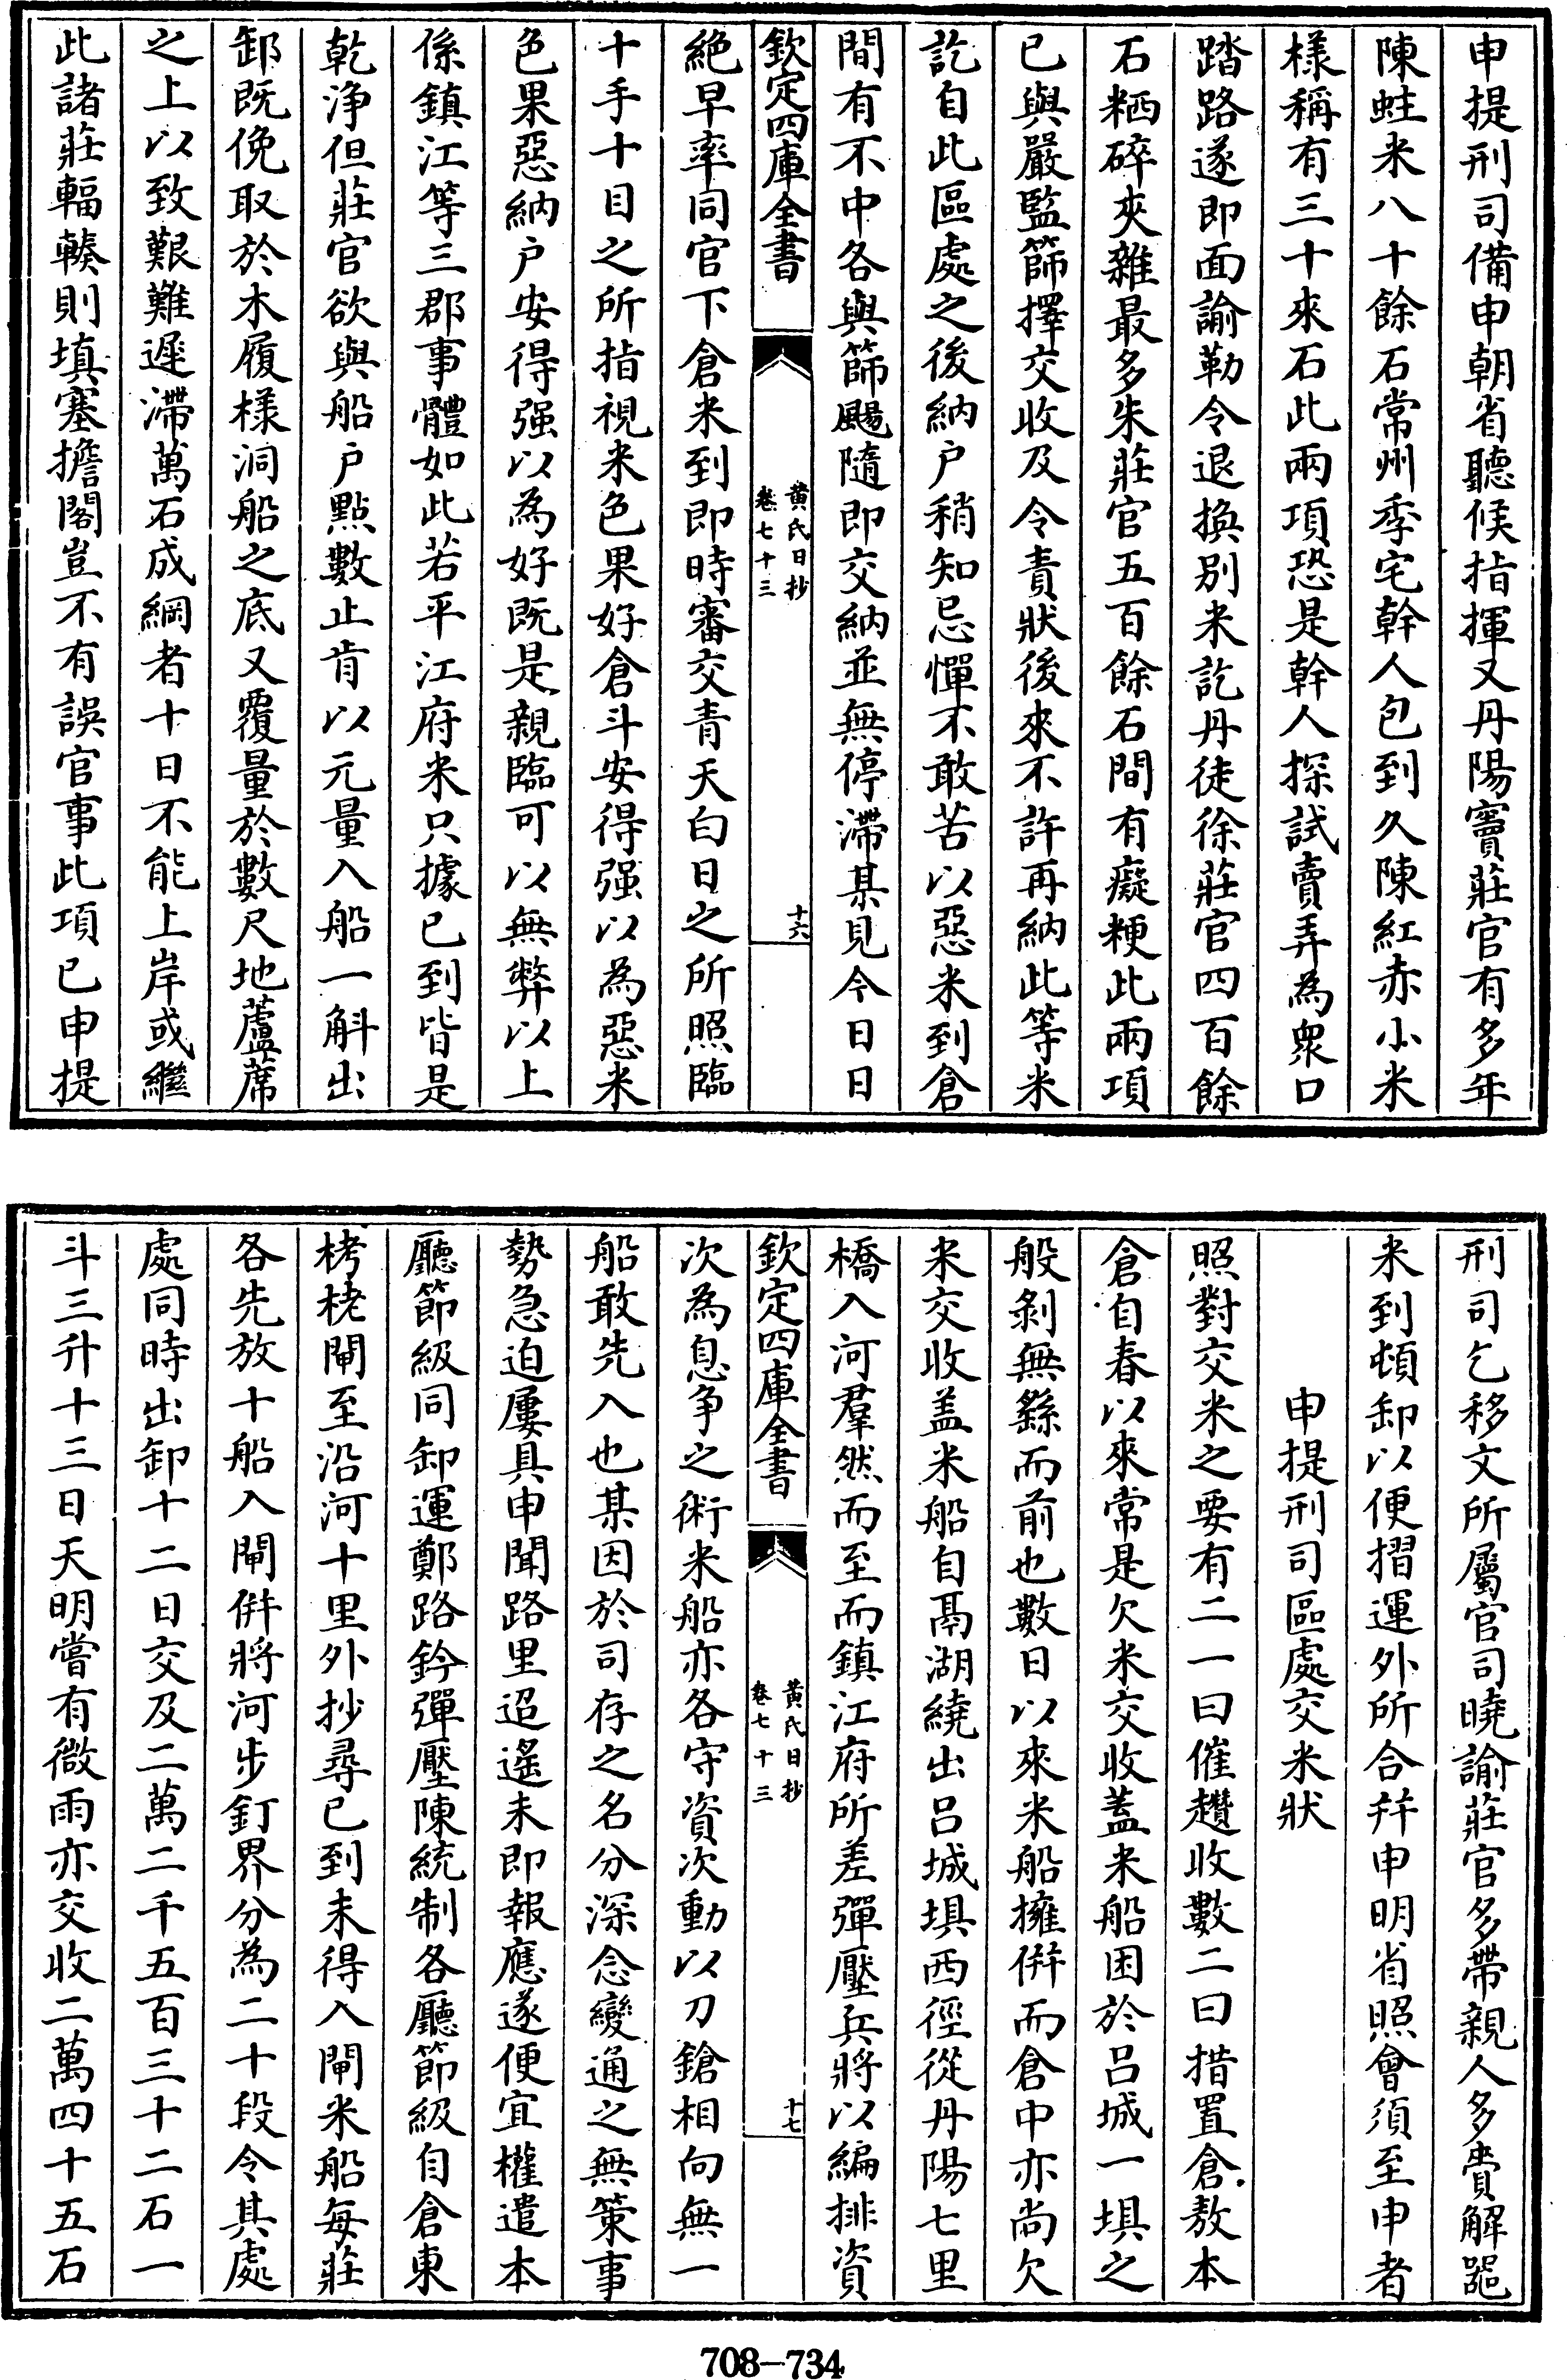 申提刑司備申朝省聽候指揮又丹陽竇莊官有多年
陳蛀米八十餘石常州季宅幹人包到久陳紅赤小米
様稱有三十來石此兩項恐是幹人探試賣弄為衆口
踏路遂即面諭勒令退換别米訖丹徒徐莊官四百餘
石粞碎夾雜最多朱莊官五百餘石間有癡粳此兩項
已與嚴監篩擇交收及令責狀後來不許再納此等米
訖自此區處之後納户稍知忌憚不敢苦以惡米到倉
間有不中各與篩颺隨即交納並無停滯某見今日日
欽定四庫全書
黄氏日抄
卷七十三
十六
絶早率同官下倉米到即時審交青天白日之所照臨
十手十目之所指視米色果好倉斗安得强以為惡米
色果惡納户安得强以為好既是親臨可以無弊以上
係鎮江等三郡事體如此若平江府米只據已到皆是
乾浄但莊官欲與船户點數止肯以元量入船一斛出
卸既俛取於木履様洞船之底又覆量於數尺地蘆蓆
之上以致艱難遲滯萬石成綱者十日不能上岸或繼
此諸莊輻輳則填塞擔閣豈不有誤官事此項已申提
刑司乞移文所屬官司曉諭莊官多帶親人多賫解噐
米到頓卸以便摺運外所合并申明省照會須至申者
申提刑司區處交米狀
照對交米之要有二一曰催趲收數二曰措置倉敖本
倉自春以來常是欠米交收蓋米船困於吕城一埧之
般剝無繇而前也數日以來米船擁併而倉中亦尚欠
米交收盖米船自鬲湖繞出吕城埧西徑從丹陽七里
橋入河羣然而至而鎮江府所差彈壓兵將以編排資
欽定四庫全書
黄氏日抄
卷七十三
十七
次為息争之術米船亦各守資次動以刀鎗相向無一
船敢先入也某因於司存之名分深念變通之無策事
勢急迫屢具申聞路里迢遥未即報應遂便宜權遣本
廳節級同卸運鄭路鈐彈壓陳統制各廳節級自倉東
栲栳閘至沿河十里外抄尋已到未得入閘米船每莊
各先放十船入閘併將河步釘界分為二十段令其處
處同時出卸十二日交及二萬二千五百三十二石一
斗三升十三日天明嘗有微雨亦交收二萬四十五石
708-734